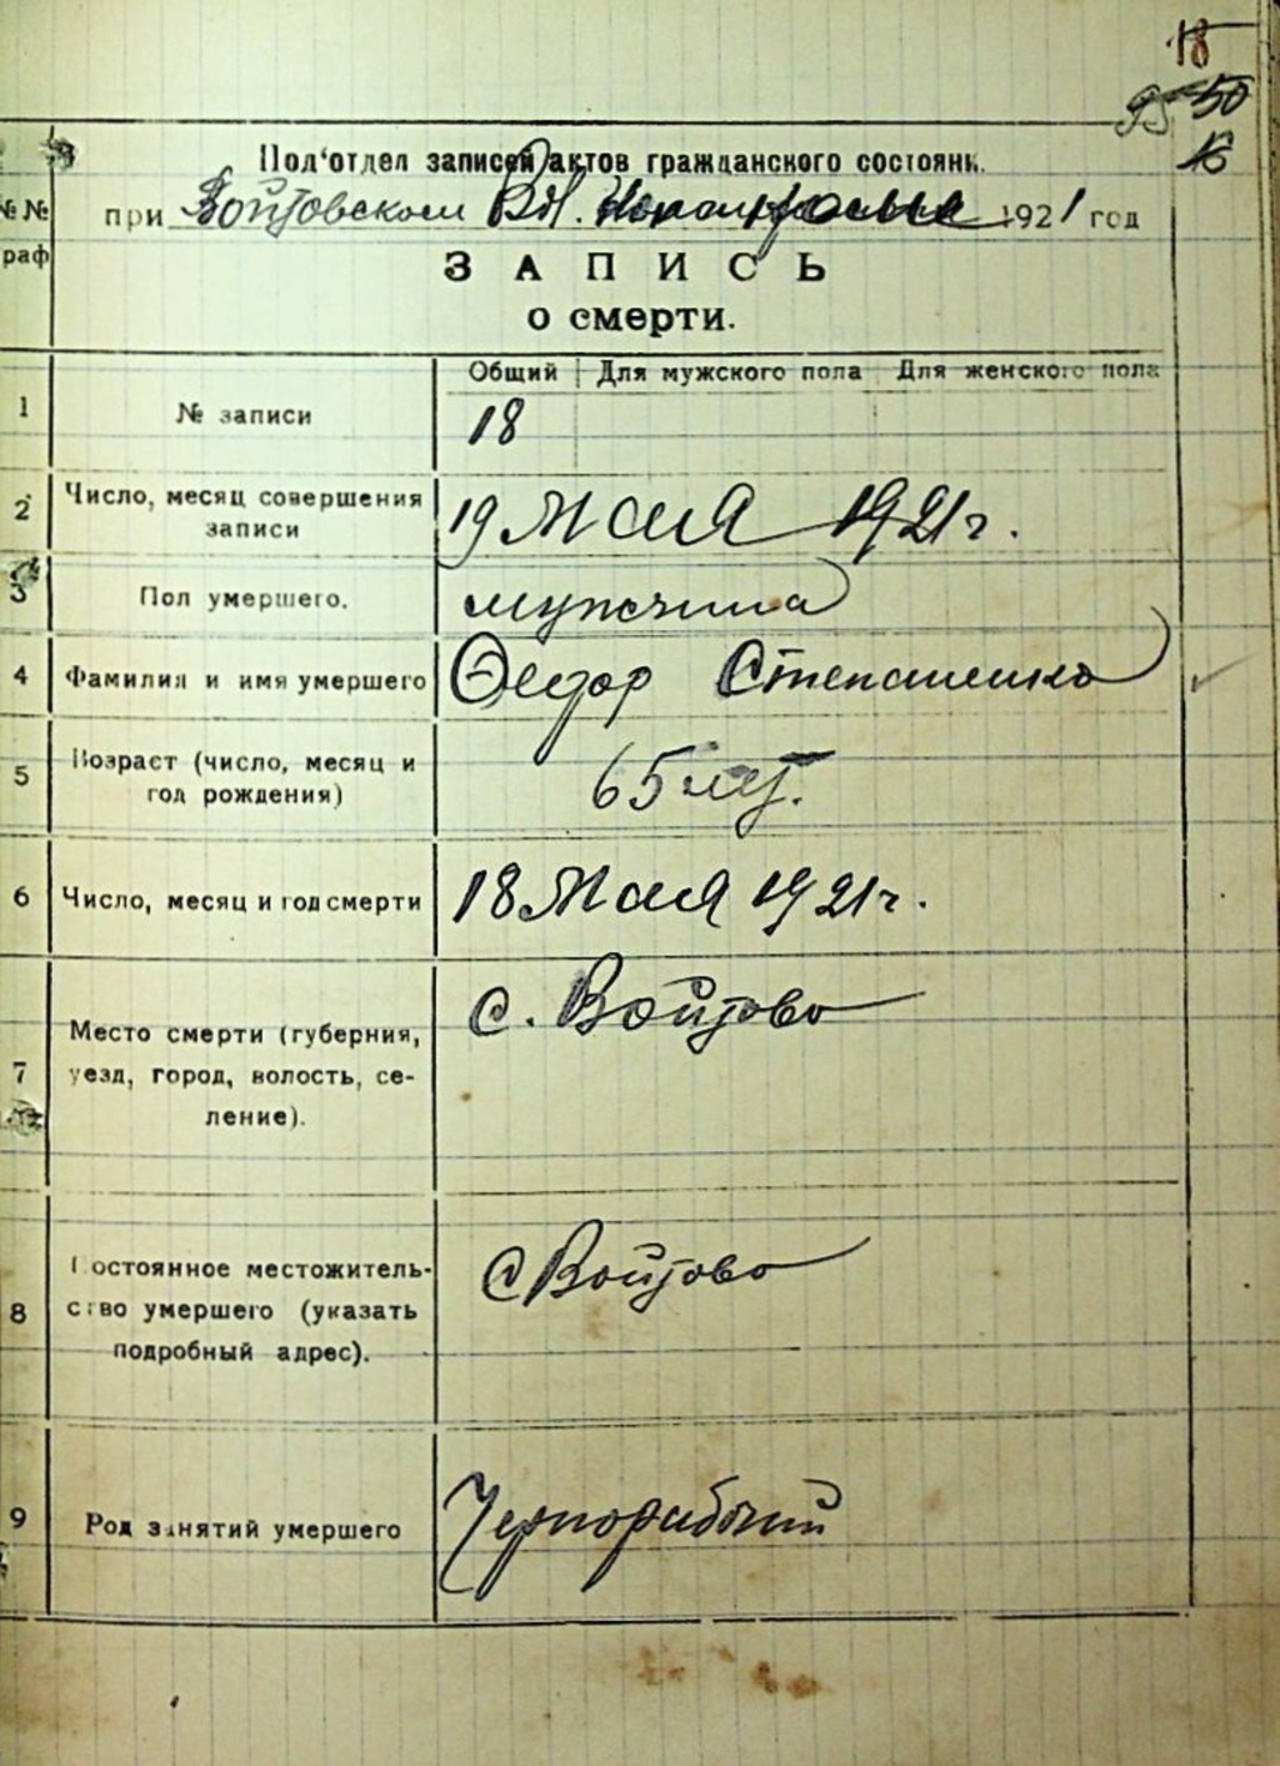 18
95 50
18
Под'отдел записей актов гражданского состояни.
при Войтовском Вл. 1921 год
№ №
раф
ЗАПИСЬ
о смерти.
Общий Для мужского пола Для женского пола
1 № записи 18
2 Число, месяц совершения записи 19 Мая 1921 г.
3 Пол умершего. мужчина
4 Фамилия и имя умершего Ѳедор Степаненко
5 Возраст (число, месяц и год рождения) 65 лет.
6 Число, месяц и год смерти 18 Мая 1921 г.
7 Место смерти (губерния, уезд, город, волость, се-
ление). с. Войтово
8 Постоянное местожитель-
ство умершего (указать подробный адрес). с Войтово
9 Род занятий умершего Чернорабочий